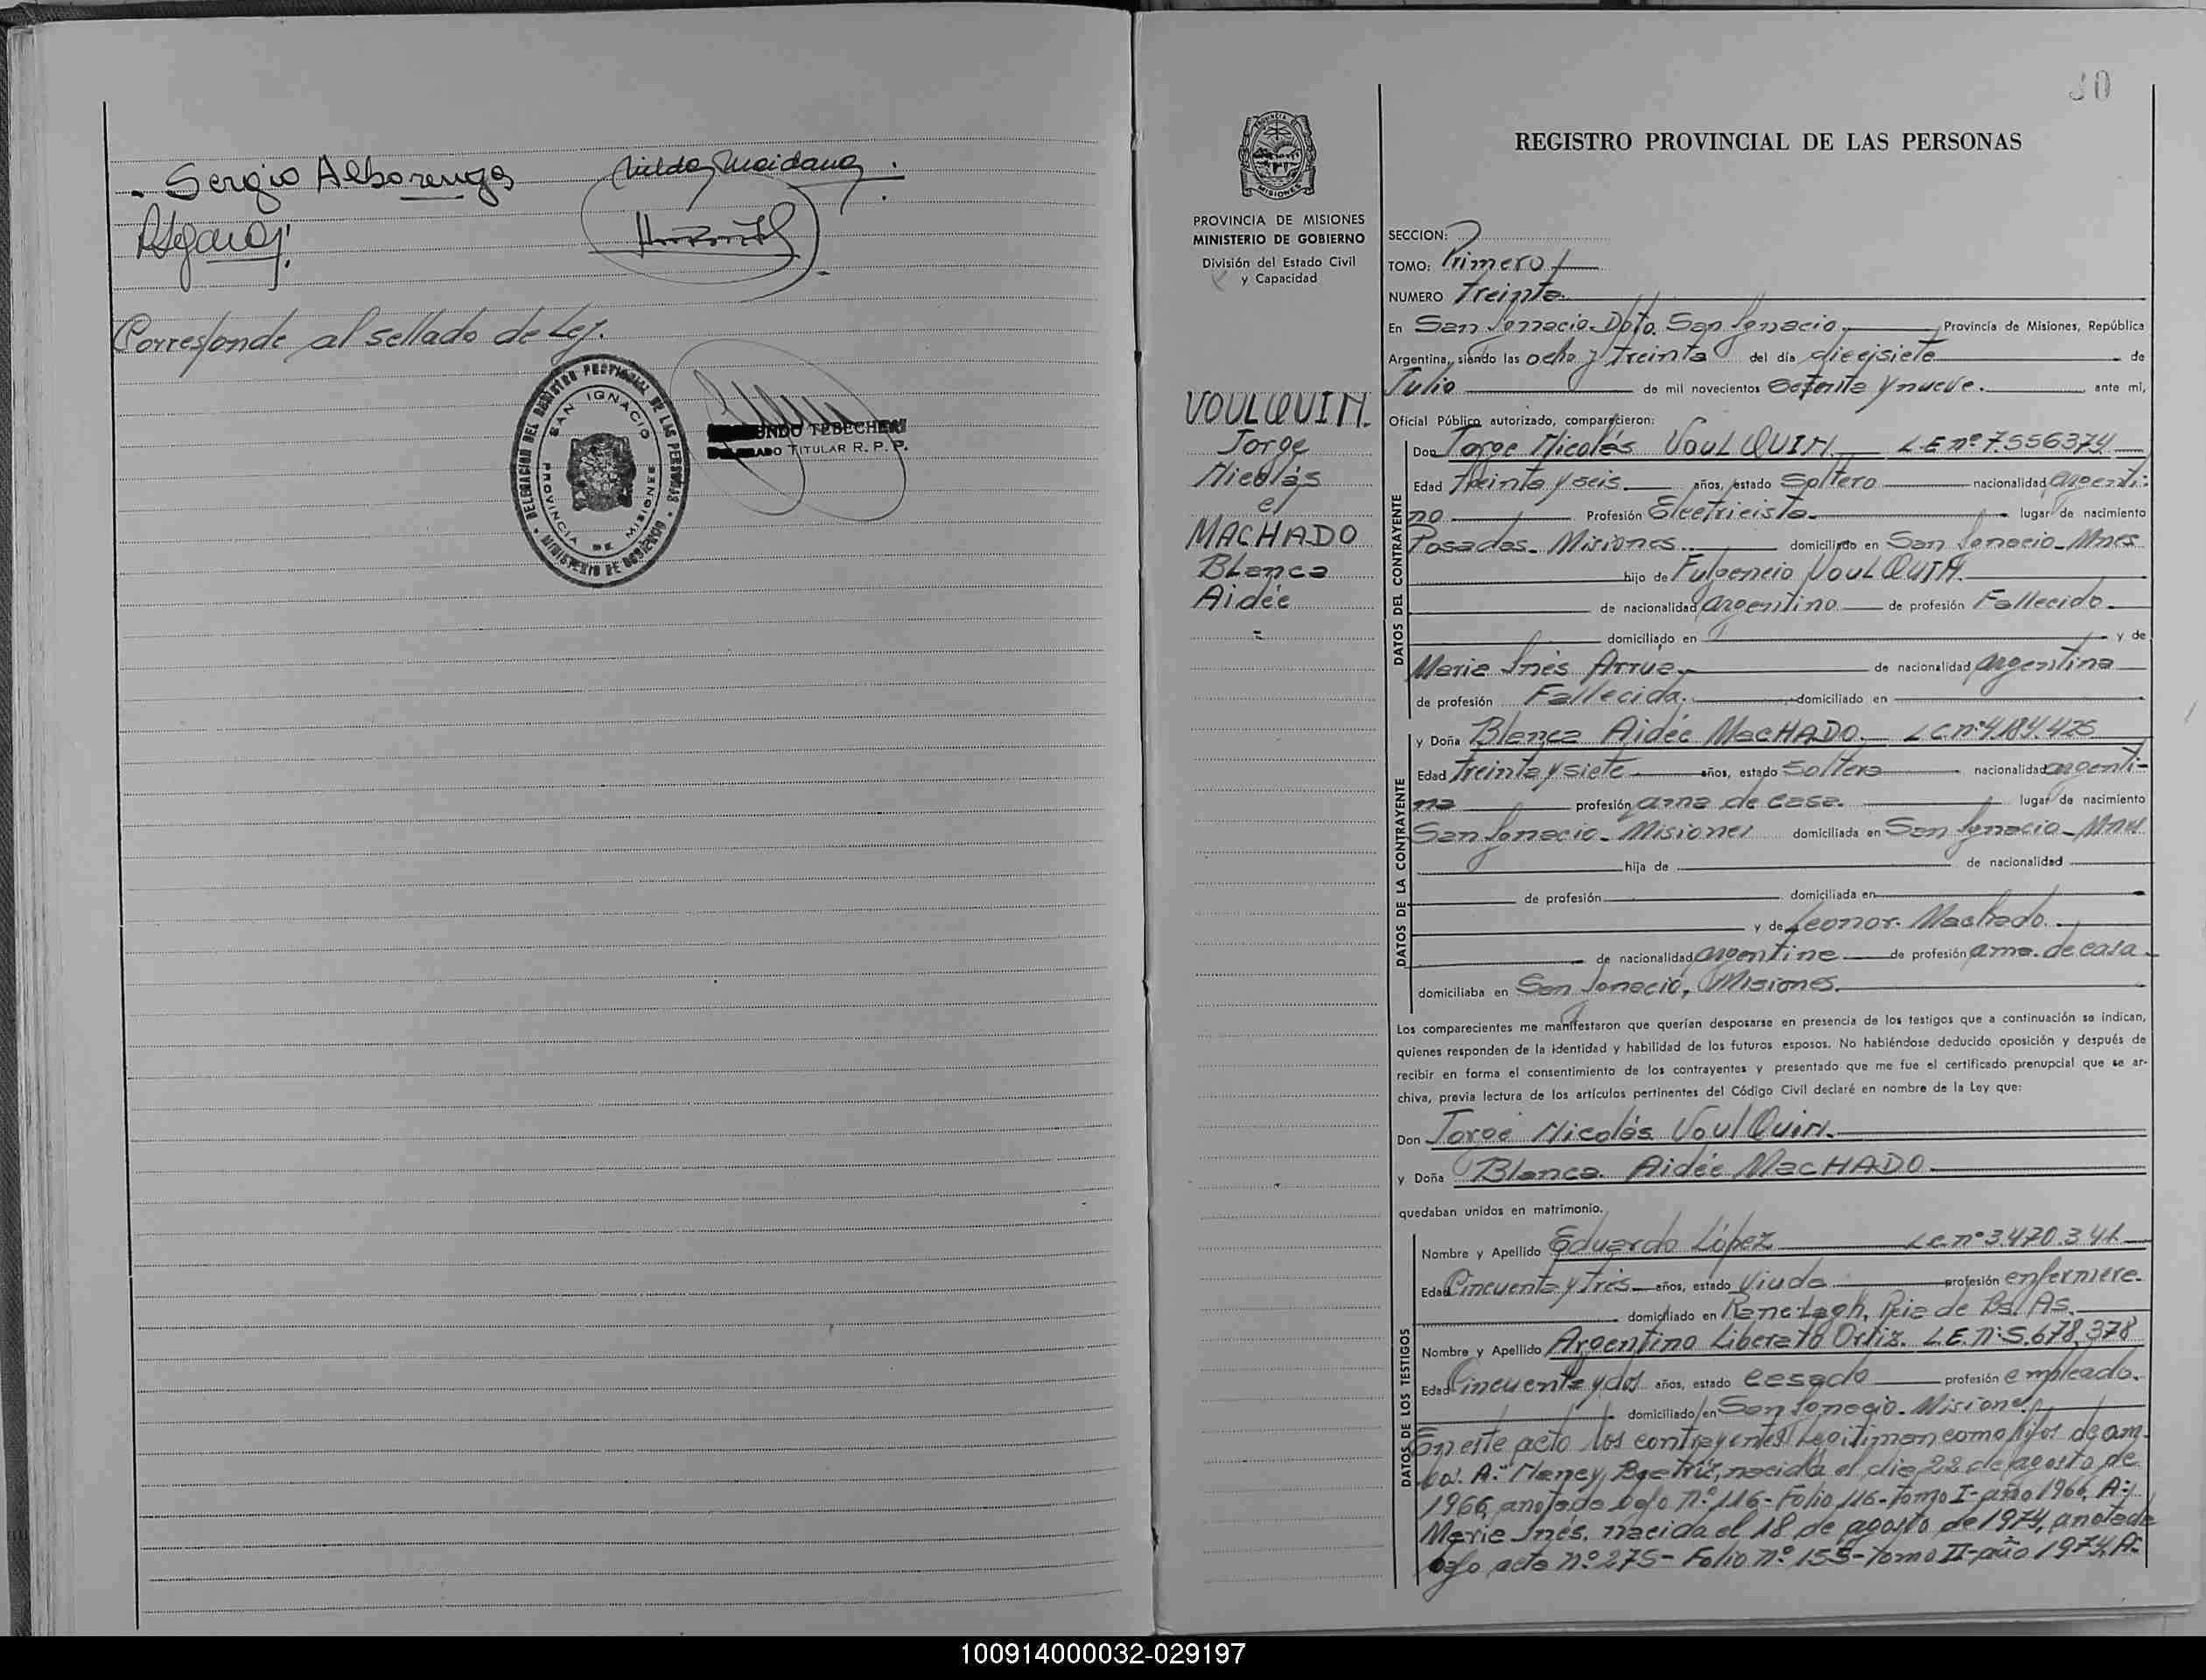 Sergio Alborenga
Corresponde al sellado de Ley.
DELEGACION DEL REGISTRO PROVINCIAL DE LAS PERSONAS
SAN IGNACIO
PROVINCIA DE MISIONES
MINISTERIO DE GOBIERNO
TEBECHERI
TITULAR R. P. P.
30
PROVINCIA DE
MISIONES
PROVINCIA DE MISIONES
MINISTERIO DE GOBIERNO
División del Estado Civil
y Capacidad
VOULQUIN.
Jorge
Nicolás
c/
MACHADO
Blanca
Aidée
=
REGISTRO PROVINCIAL DE LAS PERSONAS
SECCION:
TOMO: Primero
NUMERO treinta
En San Ignacio Dpto. San Ignacio Provincia de Misiones, República
Argentina, siendo las ocho y treinta del día diecisiete de
Julio de mil novecientos setenta y nueve. ante mi,
Oficial Público autorizado, comparecieron:
DATOS DEL CONTRAYENTE
Don Jorge Nicolás VOULQUIN. L.E nº 7.556374
Edad treinta y seis años, estado Soltero nacionalidad argenti-
no Profesión Electricista. lugar de nacimiento
Posadas. Misiones domiciliado en San Ignacio-Mnes
hijo de Fulgencio VOULQUIN.
de nacionalidad argentino de profesión Fallecido.
domiciliado en y de
Maria Inés Arrua de nacionalidad argentina
de profesión Fallecida. domiciliado en
DATOS DE LA CONTRAYENTE
y Doña Blanca Aidée MacHADO. L C nº 4.184.425
Edad treinta y siete años, estado Soltera nacionalidad argenti-
na profesión ama de casa. lugar de nacimiento
San Ignacio-Misiones domiciliada en San Ignacio-Mnes
hija de de nacionalidad
de profesión domiciliada en
y de Leonor Machado.
de nacionalidad argentina de profesión ama de casa
domiciliaba en San Ignacio, Misiones.
Los comparecientes me manifestaron que querían desposarse en presencia de los testigos que a continuación se indican,
quienes responden de la identidad y habilidad de los futuros esposos. No habiéndose deducido oposición y después de
recibir en forma el consentimiento de los contrayentes y presentado que me fue el certificado prenupcial que se ar-
chiva, previa lectura de los artículos pertinentes del Código Civil declaré en nombre de la Ley que:
Don Jorge Nicolás VoulQuin.
y Doña Blanca Aidée MacHADO.
quedaban unidos en matrimonio.
DATOS DE LOS TESTIGOS
Nombre y Apellido Eduarda López L.C. nº 3.470.341
Edad Cincuenta y tres años, estado Viuda profesión enfermera.
domiciliado en Ranelagh, Pcia de Bs. As.
Nombre y Apellido Argentino Liberato Ortiz. L.E. nº 5.678.378
Edad Cincuenta y dos años, estado casado profesión empleado.
domiciliado en San Ignacio-Misiones
En este acto los contrayentes Legitiman como hijos de am-
bos. A: Nancy Beatriz, nacida el día 22 de agosto de
1966, anotada bajo nº 116-Folio 116-Tomo I-año 1966, A:
Maria Inés, nacida el 18 de agosto de 1974, anotada
bajo acta nº 275-Folio nº 155-tomo II-año 1974, A:
100914000032-029197